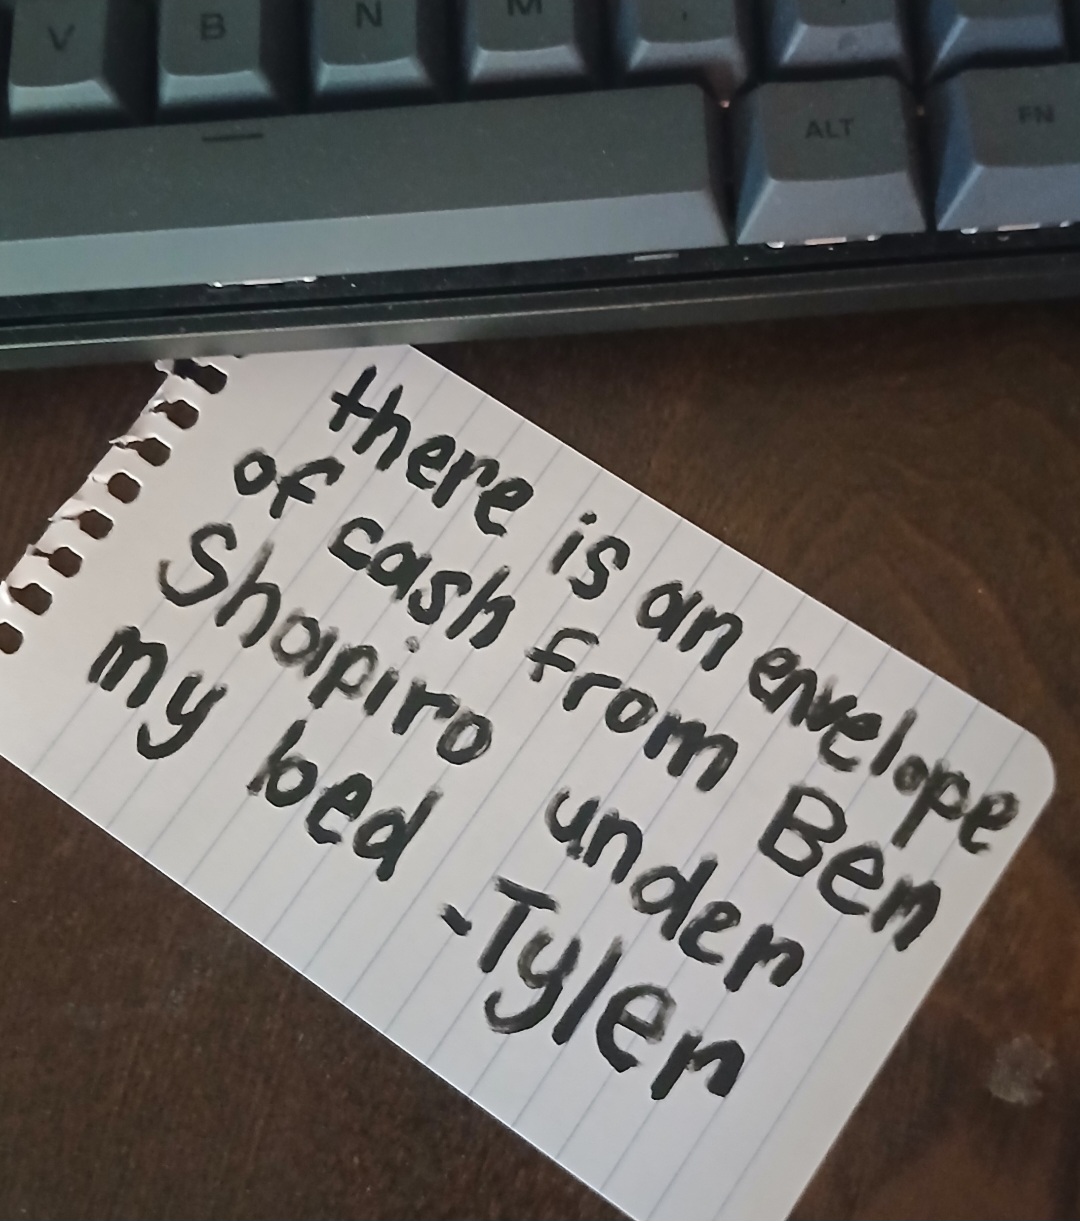 V B N M ,
ALT FN
there is an envelope
of cash from Ben
Shapiro under
my bed
-Tyler